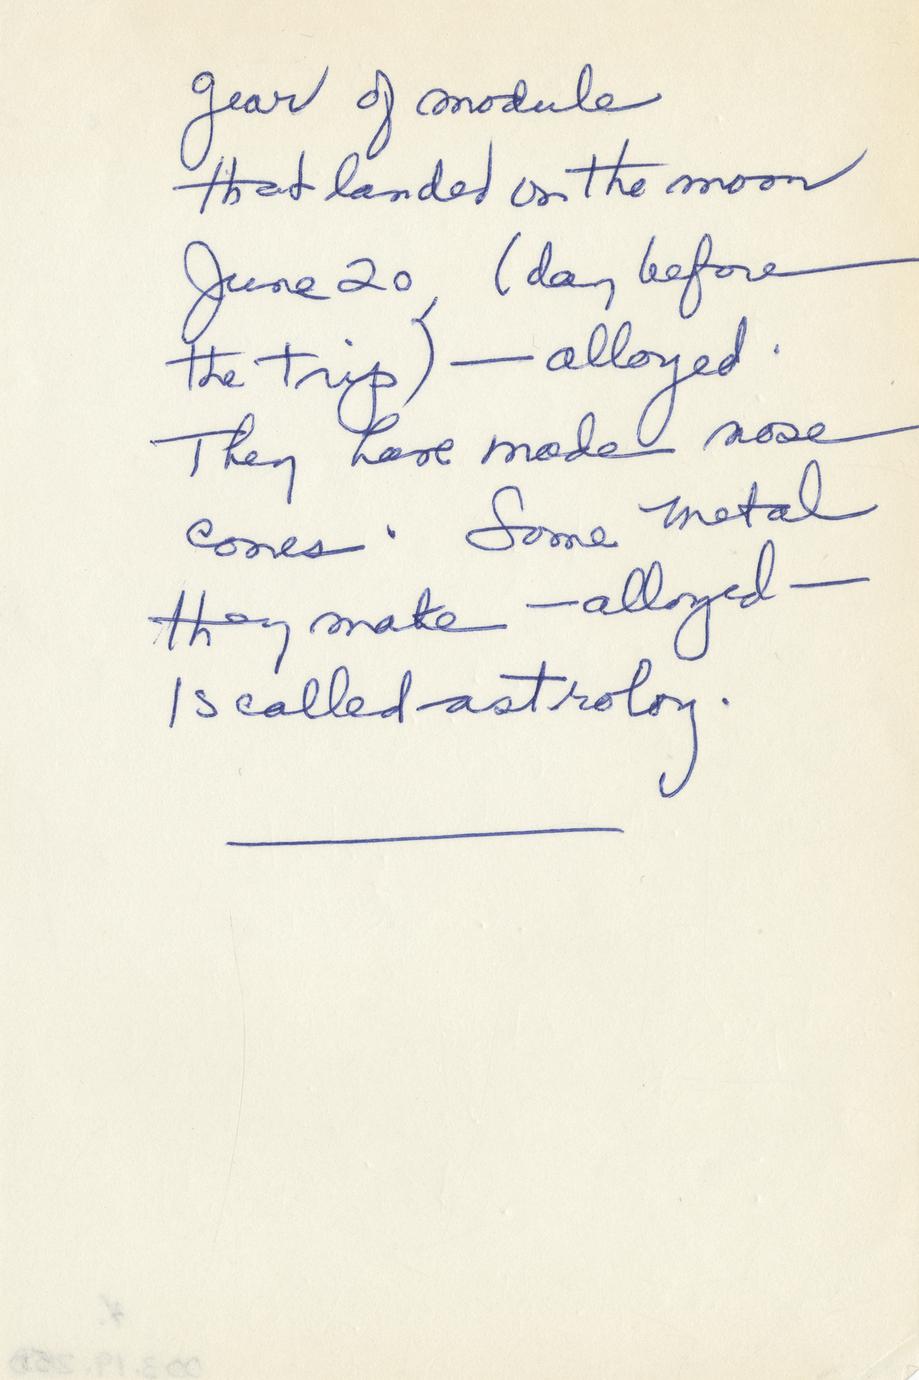 gear of module
that landed on the moon
June 20, (day before
the trip) — alloyed.
They have made nose
cones. Some metal
they make — alloyed —
is called astroloy.